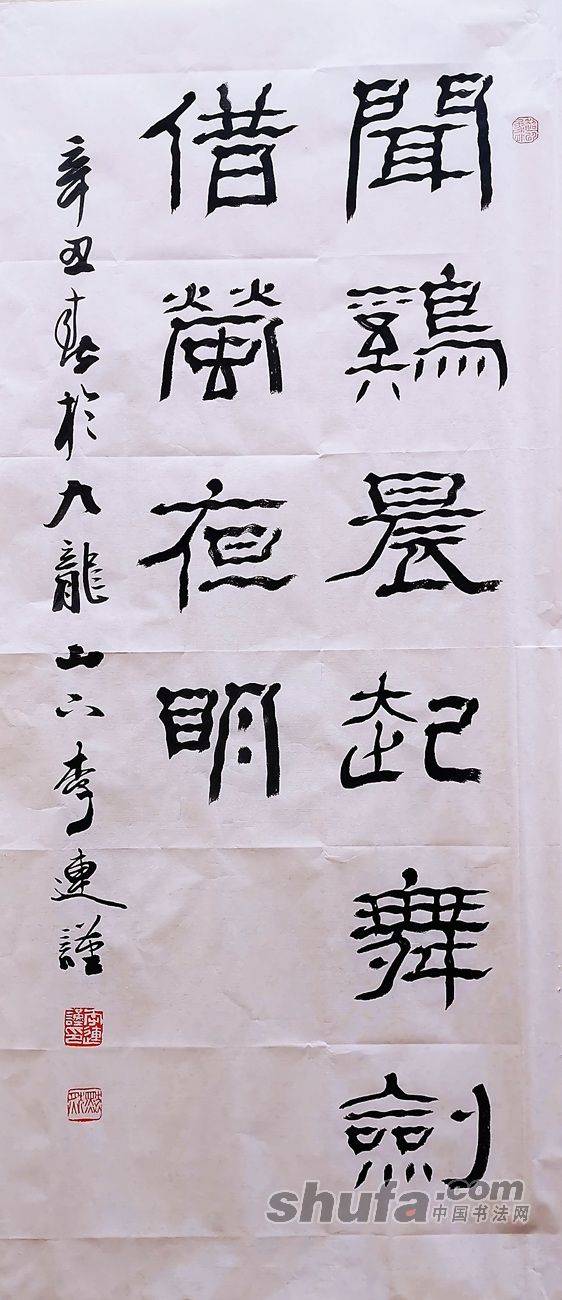 聞鷄晨起舞劍
借螢夜明
辛丑春於九龍山下李連謹
李連謹印
shufa.com
中国书法网